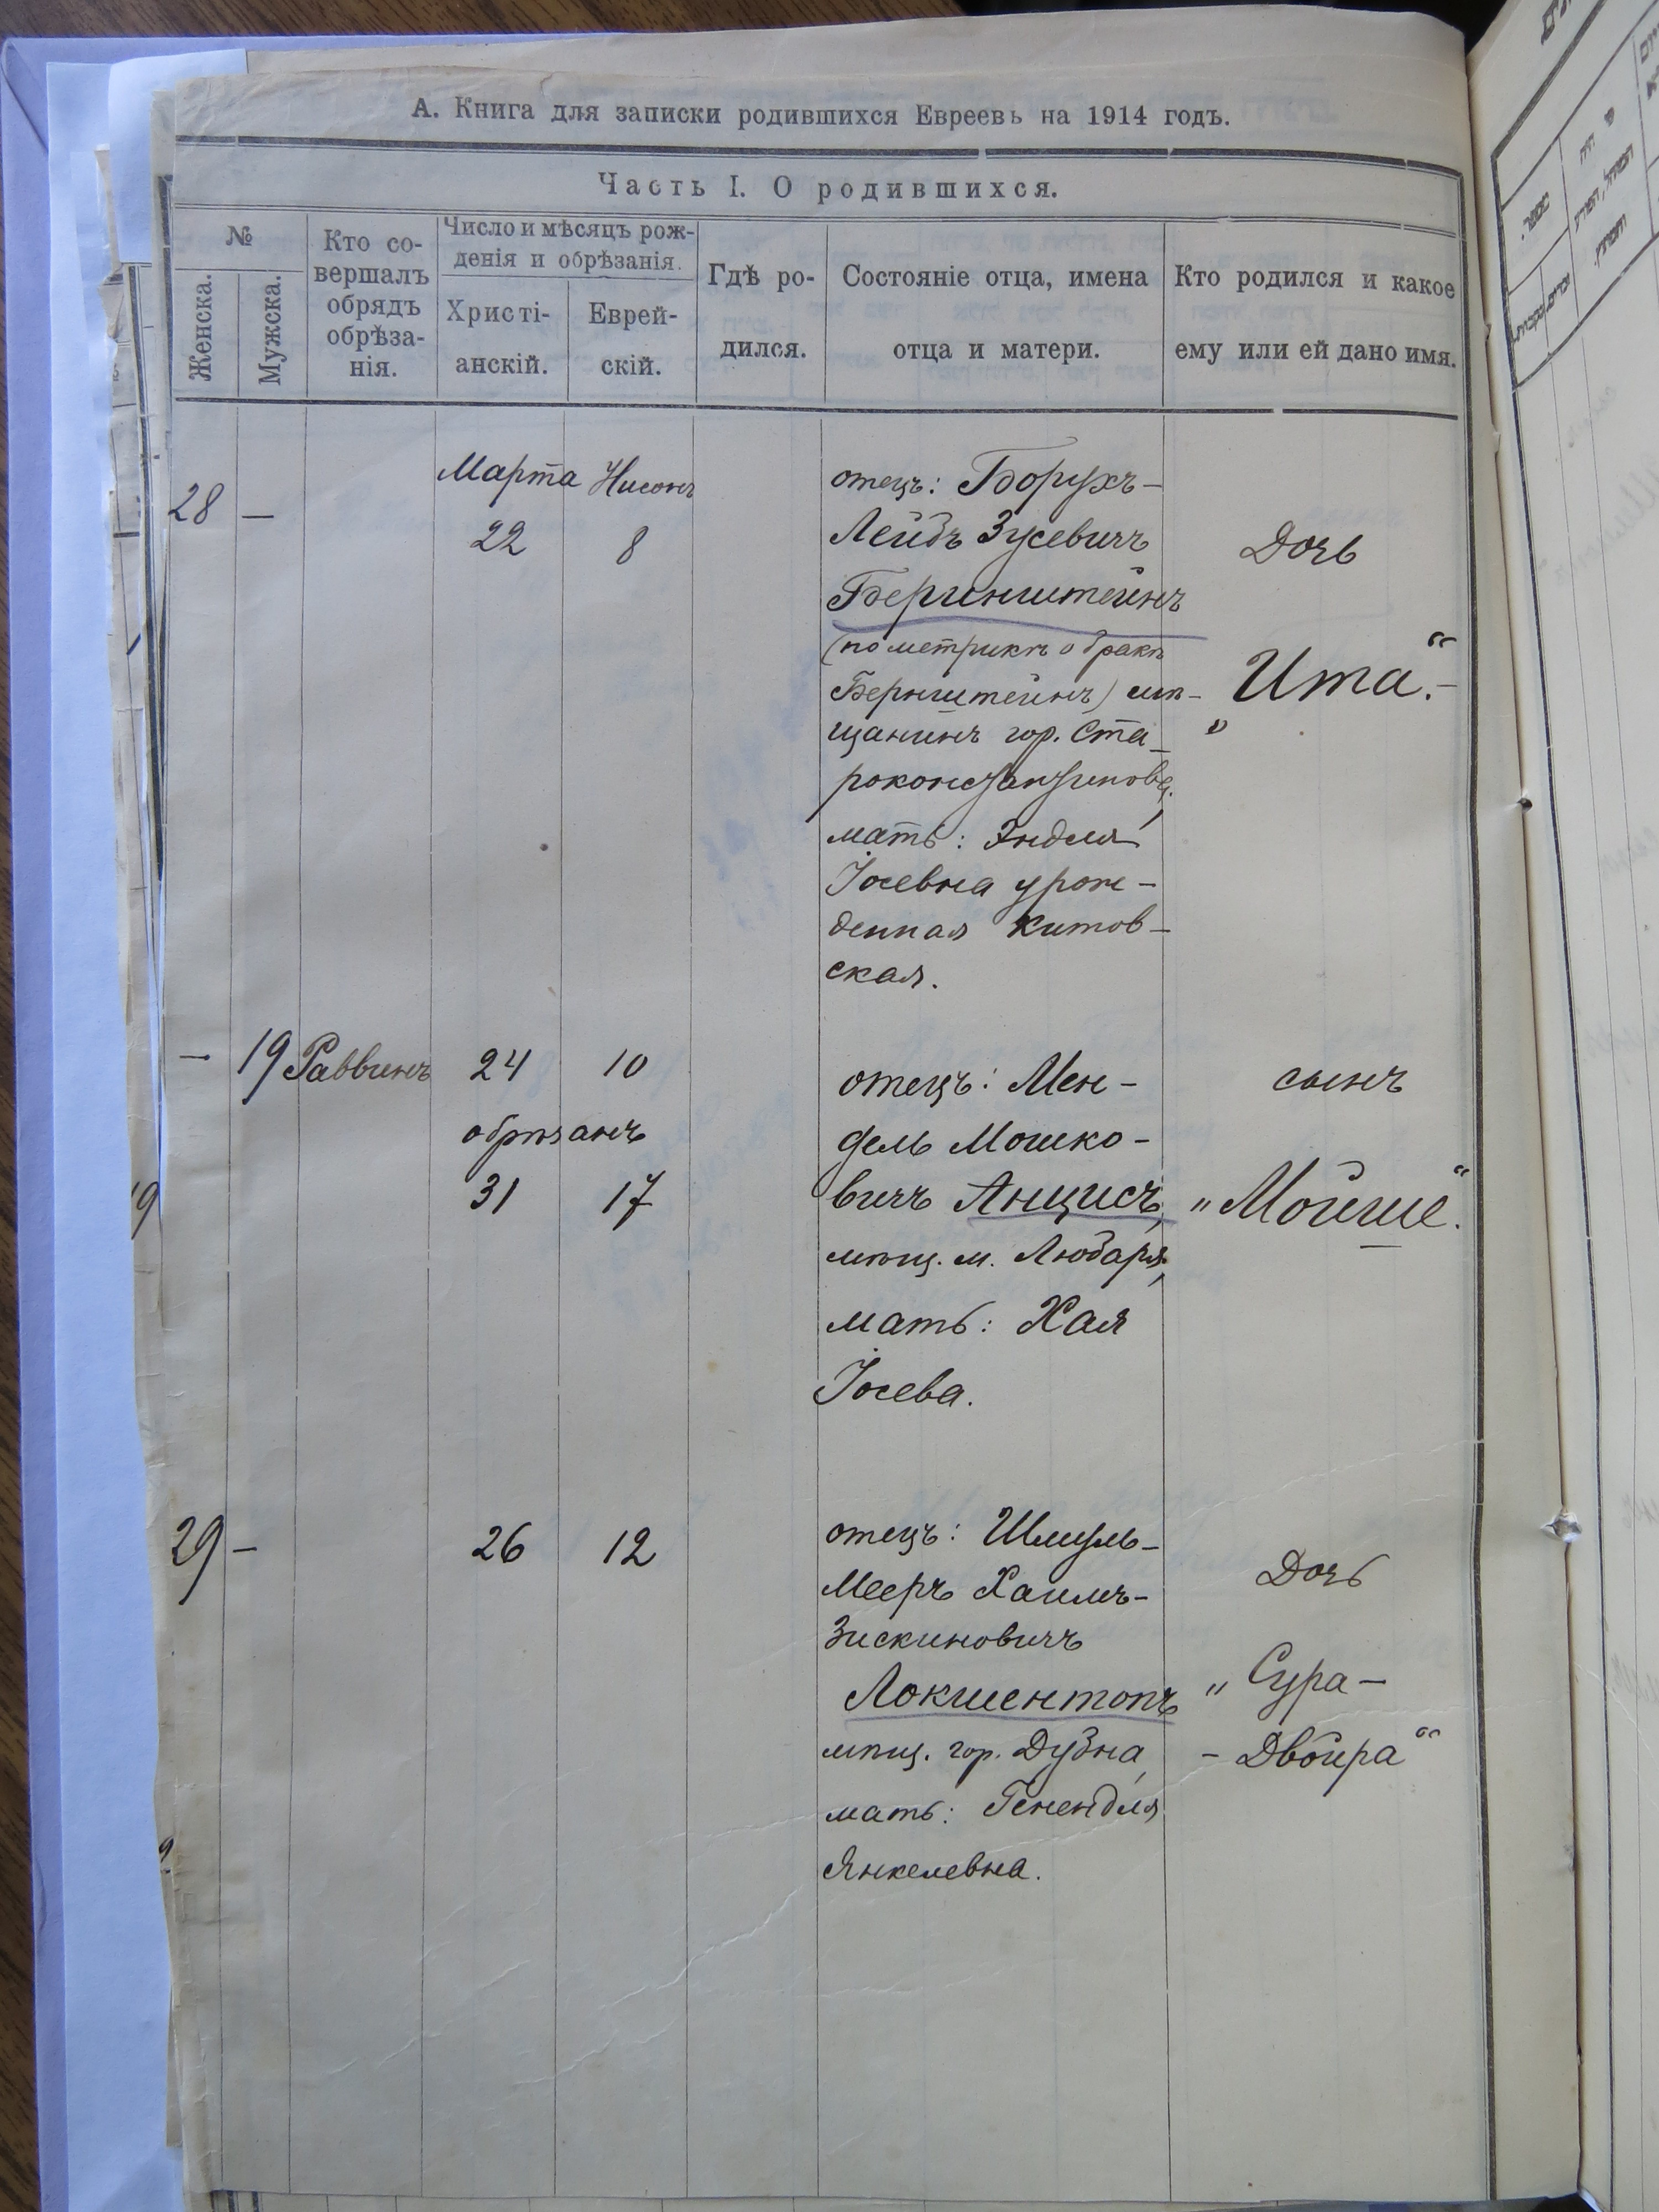 А. Книга для записки родившихся Евреевъ на 1914 годъ.
Часть I. О родившихся.
№
Женска.
Мужска.
Кто со-
вершалъ
обрядъ
обрѣза-
нія.
Число и мѣсяцъ рож-
денія и обрѣзанія.
Христі-
анскій.
Еврей-
скій.
Гдѣ ро-
дился.
Состояніе отца, имена
отца и матери.
Кто родился и какое
ему или ей дано имя.
28 —
Марта Нисонъ
22 8
отецъ: Борухъ-
Лейбъ Зусевичъ
Беринштейнъ
(по метрикѣ о бракѣ
Бернштейнъ) мѣ-
щанинъ гор. Ста-
роконстантинова,
мать: Эндля
Іосевна урож-
денная Китов-
ская.
Дочь
„Ита“.-
— 19 Раввинъ 24 10
обрѣзанъ
31 17
отецъ: Мен-
дель Мошко-
вичъ Анцисъ,
мѣщ. м. Любаря,
мать: Хая
Іосева.
сынъ
„Мойше“.
29 —
26 12
отецъ: Шмуль-
Мееръ Хаимъ-
Зискиновичъ
Локшентопъ
мѣщ. гор. Дубна,
мать: Генендля
Янкелевна.
Дочь
„Сура-
- Двойра“